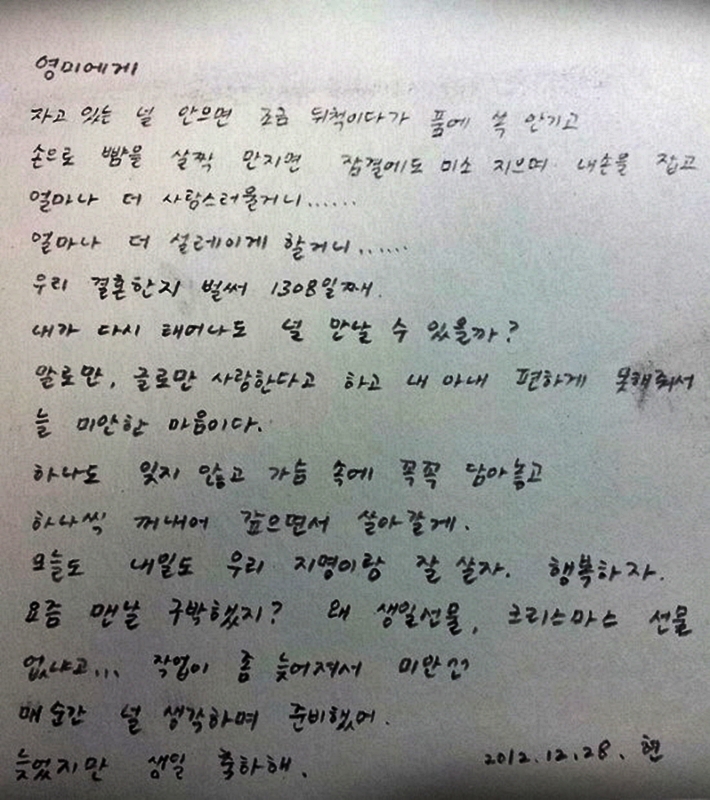 영미에게
자고 있는 널 안으면 조금 뒤척이다가 품에 쏙 안기고
손으로 뺨을 살짝 만지면 잠결에도 미소 지으며 내손을 잡고
얼마나 더 사랑스러울거니......
얼마나 더 설레이게 할거니......
우리 결혼한지 벌써 1308일째.
내가 다시 태어나도 널 만날 수 있을까?
말로만, 글로만 사랑한다고 하고 내 아내 편하게 못해줘서
늘 미안한 마음이다.
하나도 잊지 않고 가슴 속에 꼭꼭 담아놓고
하나씩 꺼내어 갚으면서 살아갈게.
오늘도 내일도 우리 지명이랑 잘 살자. 행복하자.
요즘 맨날 구박했지? 왜 생일선물, 크리스마스 선물
없냐고... 작업이 좀 늦어져서 미안^^
매 순간 널 생각하며 준비했어.
늦었지만 생일 축하해.
2012.12.28. 현